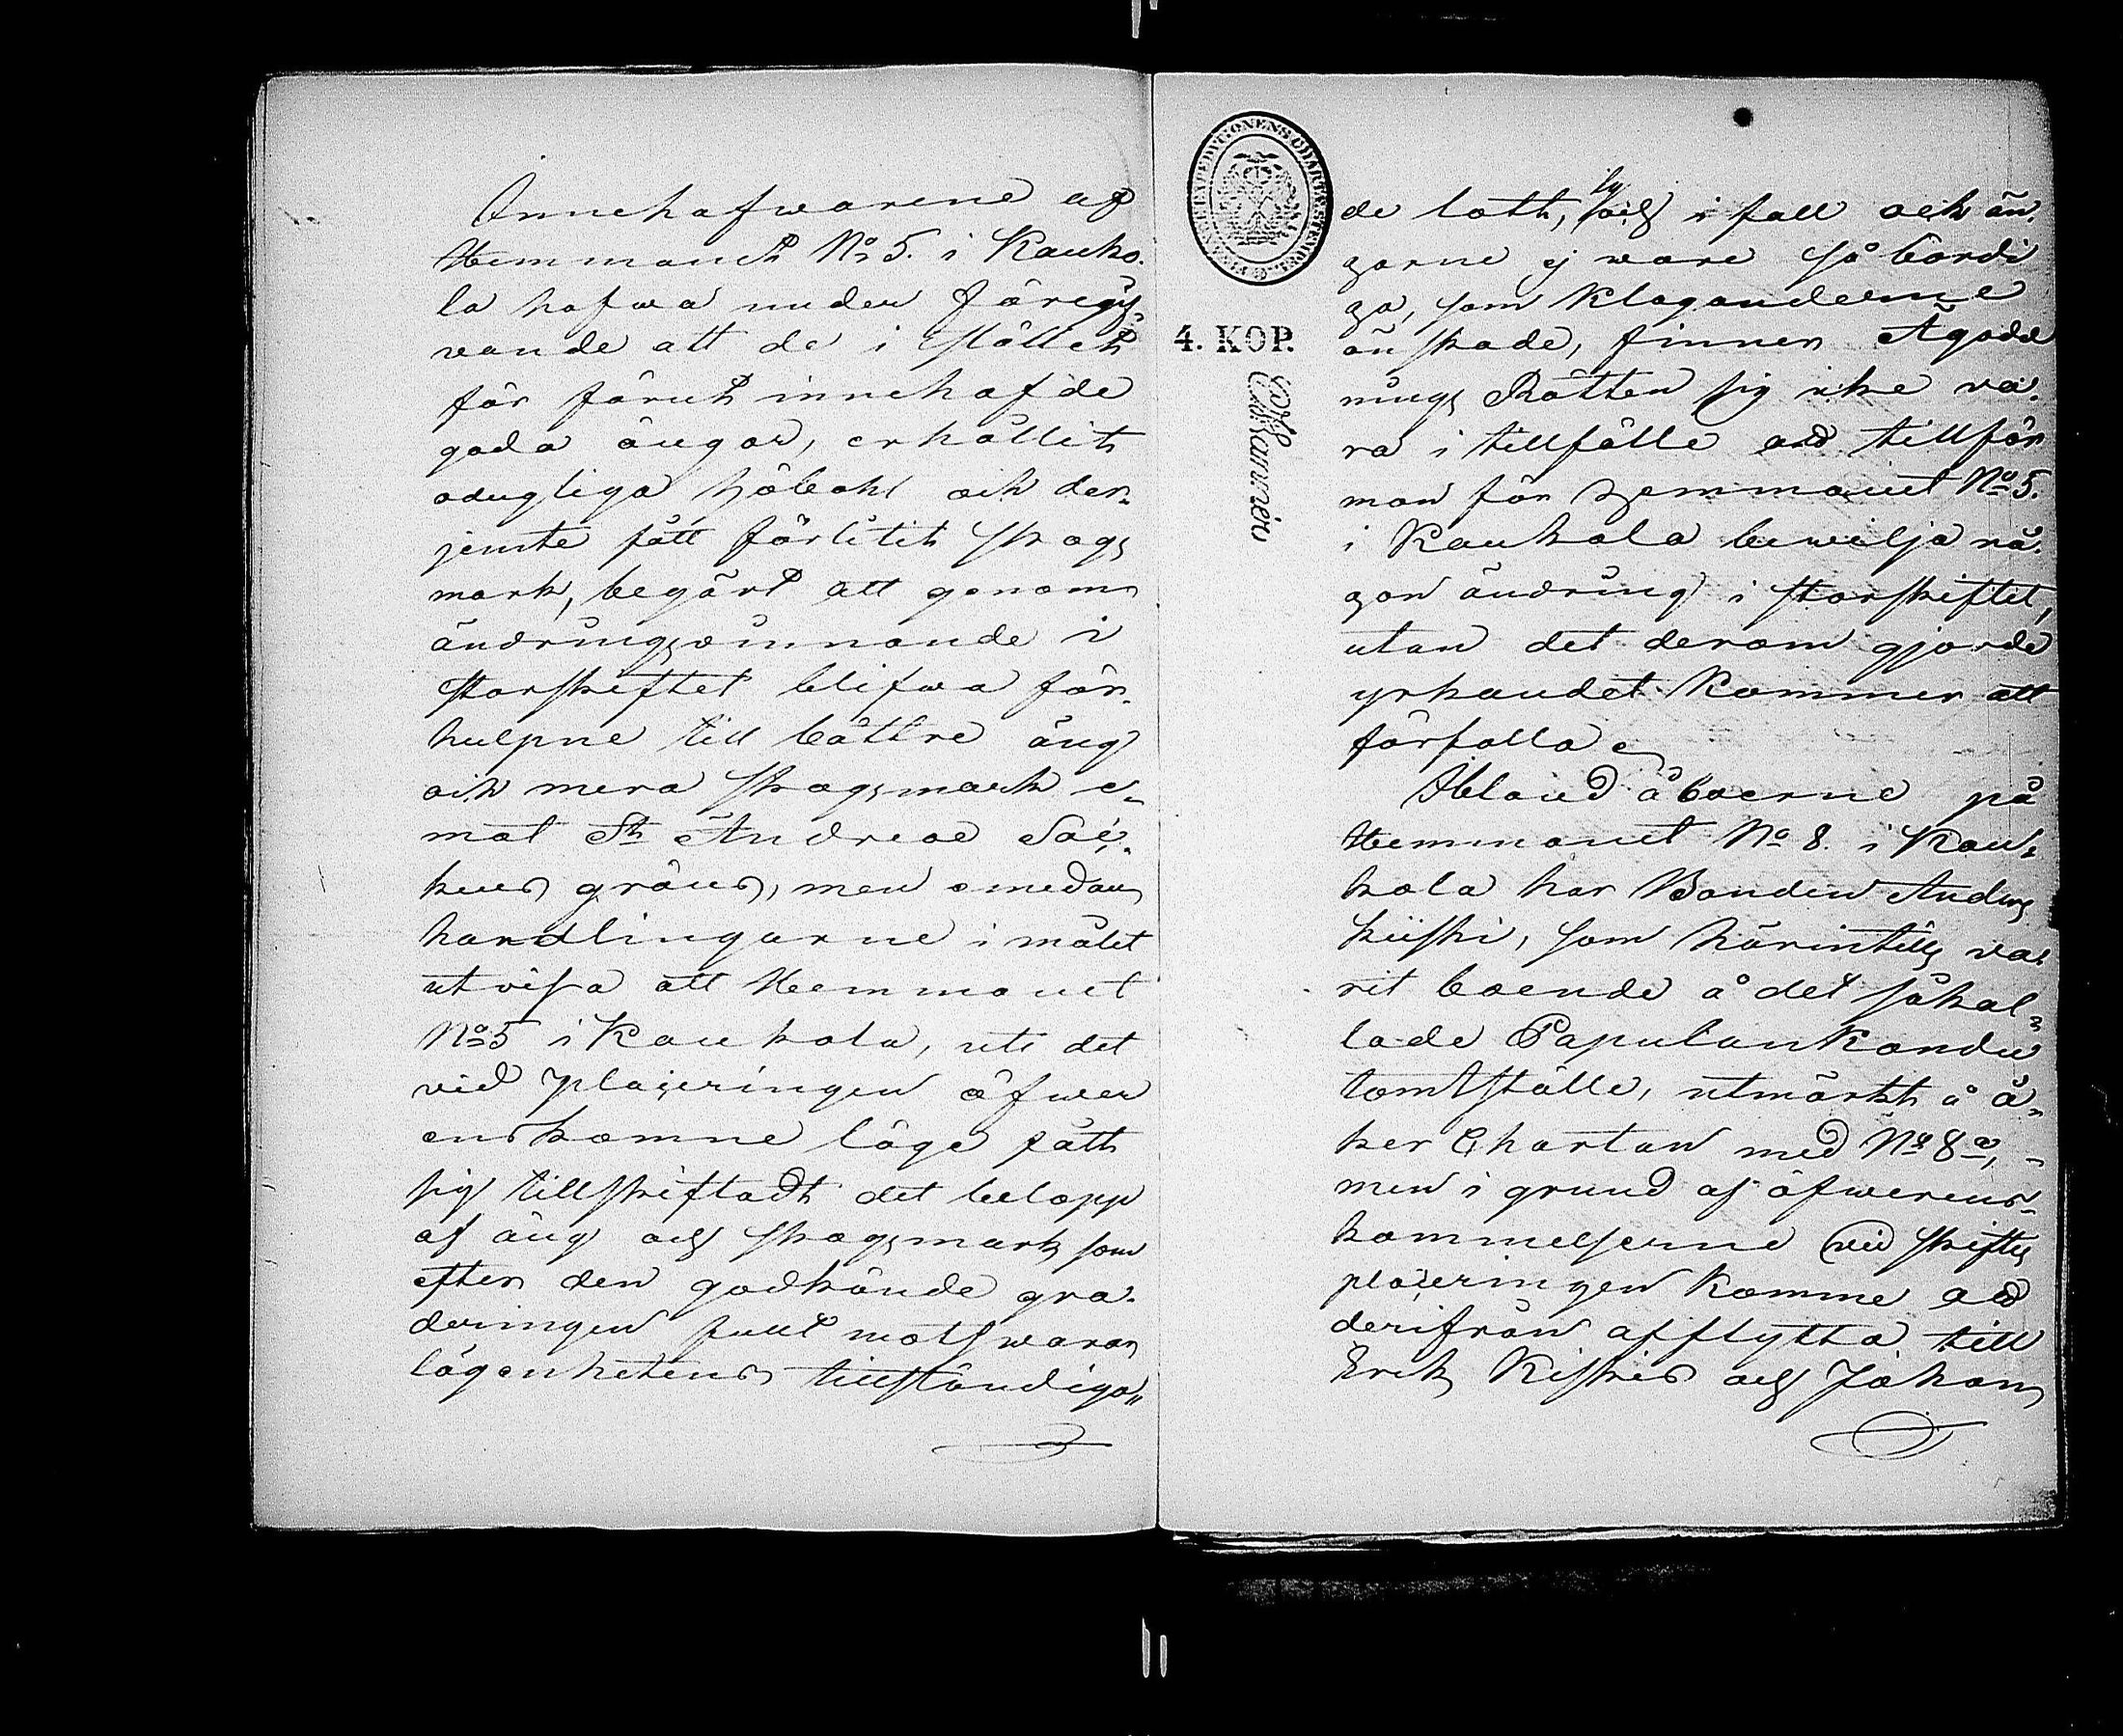 Innehafwarene af
Hemmanet No 5. i Kauko-
la hafwa under föregif-
vande att de i stället
för förut innehafde
goda ängar, erhållit
odugliga höbohl och der-
jemte fått förlitit skogs
mark, begärt att genom
ändringsvinnande i
storskiftet blifwa för-
hulpne till bättre äng
och mera skogsmark e-
mot St Andreae Soc-
kens gräns, men emedan
handlingarne i målet
utvisa att Hemmanet
No 5 i Kaukola, uti det
vid placeringen öfwer
enskomne läge fått
sig tillskiftadt det belopp
af äng och skogsmark som
efter den godkände gra-
deringen fullt motswarar
lägenhetens tillständiga
FINSKA EXPEDITIONENS CHARTÆ STEMPEL
4. KOP.
de lott, och i fall ock än-
garne ej wore så bördi
ga, som Klaganderne
önskade, finner Ägodel
nings Rätten sig icke va-
ra i tillfälle att till för
mon för hemmanet No 5.
i Kaukola bewilja nå-
gon ändring i storskiftet,
utan det derom gjorde
yrkandet kommer att
förfalla
Ibland åboerne på
Hemmanet No 8. i Kau-
kola har Bonden Anders
Kiiski, som härintills va-
rit boende å det såkal-
lade Papulankandu
tomtställe, utmärkt å å-
ker Chartan med No 8 a,
men i grund af öfwerens-
kommelserne vid skiftes
placeringen komme att
derifrån afflytta till
Erik Kiskis och Johan